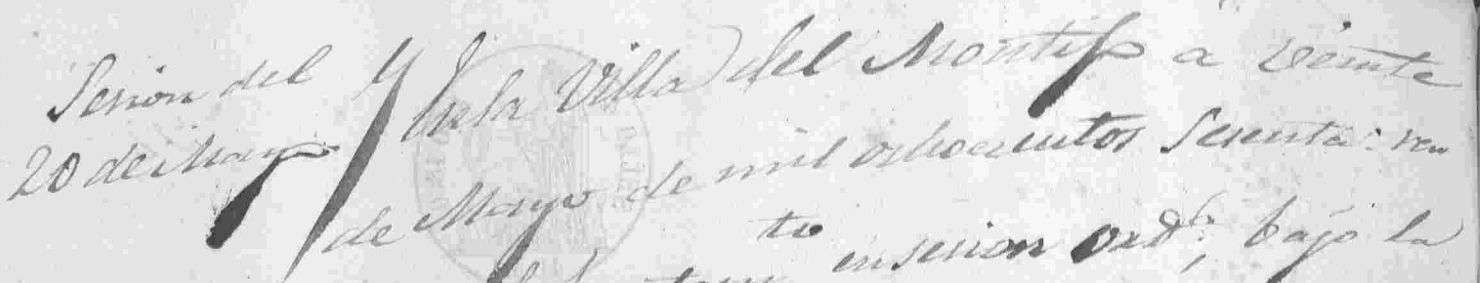 Sesion del
20 de Mayo
En la Villa del Montijo a veinte
de Mayo de mil ochocientos sesenta: reu
en sesion ordª, bajo la